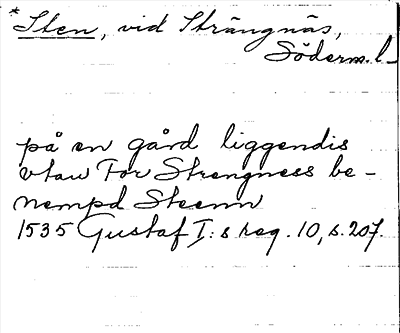 *Sten, vid Strängnäs,
Söderm. l.
på en gård liggendis
vtau For Strengness be-
nempd Steenn
1535 Gustaf I:s reg. 10, s. 207.